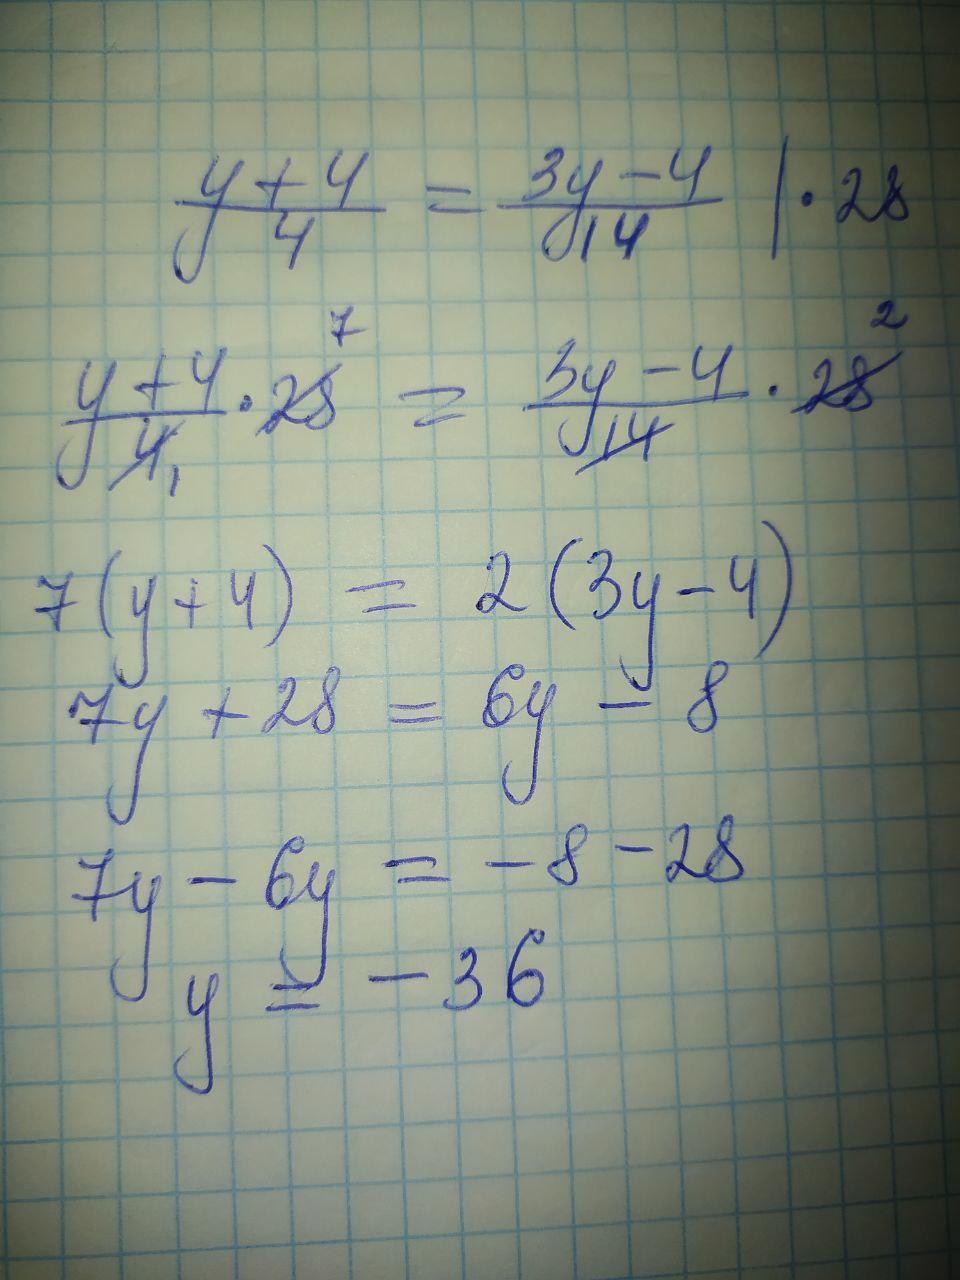 y + 4 / 4 = 3y - 4 / 14 | · 28
y + 4 / 4 1 · 28 7 = 3y - 4 / 14 · 28 2
7 (y + 4) = 2 (3y - 4)
7y + 28 = 6y - 8
7y - 6y = - 8 - 28
y = - 36